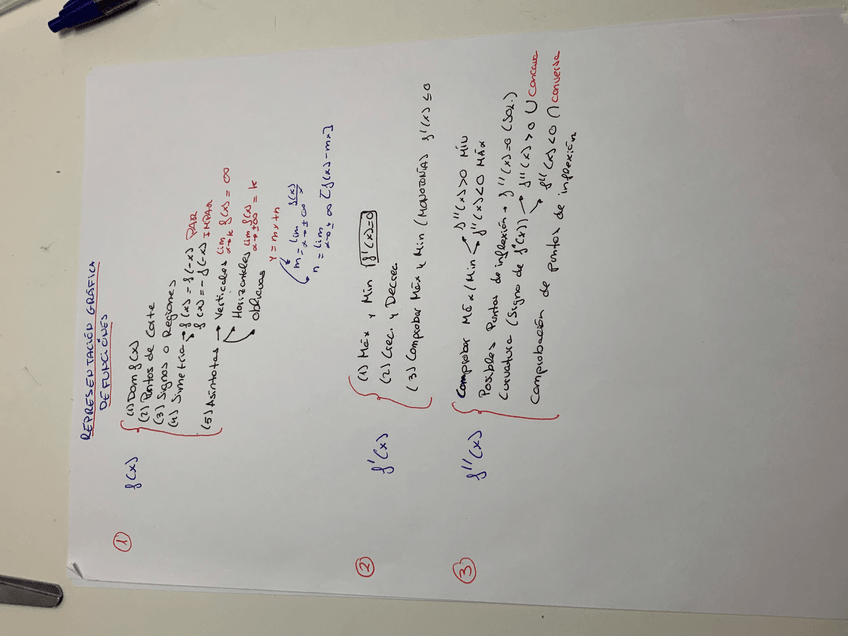 REPRESENTACIÓN GRÁFICA
DE FUNCIONES
① f(x)
(1) Dom f(x)
(2) Puntos de Corte
(3) Signos o Regiones
(4) Simetría → f(x) = f(-x) PAR
f(x) = -f(-x) IMPAR
(5) Asíntotas → Verticales lim x→k f(x) = ∞
Horizontales lim x→±∞ f(x) = k
Oblicuas
y = mx+n
m = lim x→±∞ f(x)/x
n = lim x→±∞ [f(x) - mx]
② f'(x)
(1) Máx y Min f'(x)=0
(2) Crec. y Decrec
(3) Comprobar Máx y Min (MONOTONÍA) f'(x) ≤ 0
③ f''(x)
Comprobar Máx/Min → f''(x)>0 MIN
f''(x)<0 MÁX
Posibles Puntos de inflexión → f''(x)=0 (SOL.)
Curvatura (Signo de f''(x)) → f''(x)>0 ∪ Concava
f''(x)<0 ∩ convexa
Comprobación de puntos de inflexión